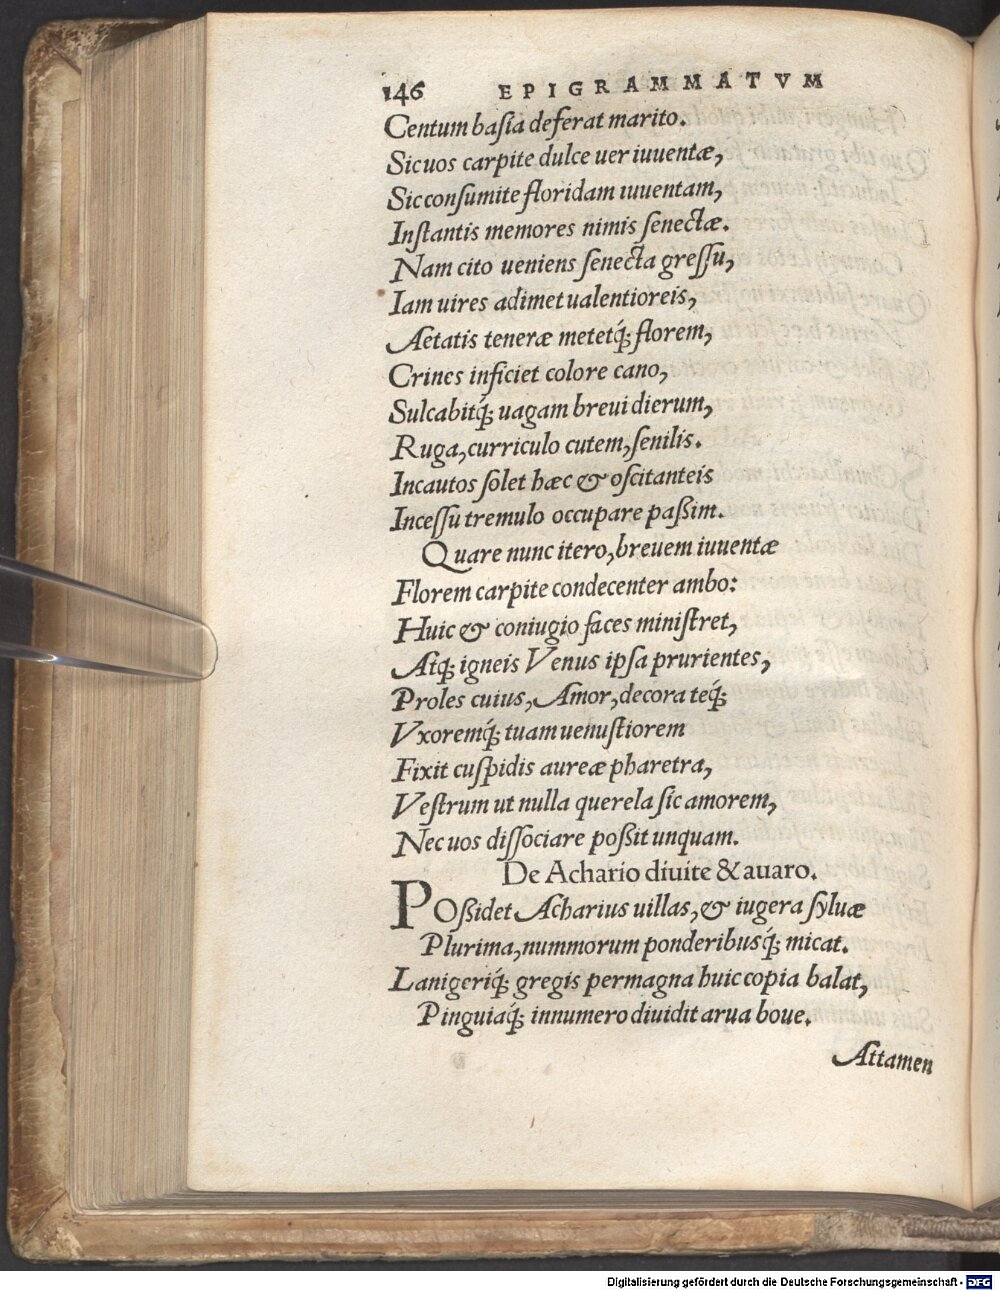 146 EPIGRAMMATVM
Centum basia deferat marito.
Sic uos carpite dulce uer iuuentæ,
Sic consumite floridam iuuentam,
Instantis memores nimis senectæ.
Nam cito ueniens senecta gressu,
Iam uires adimet ualentioreis,
Aetatis teneræ metetq́; florem,
Crines inficiet colore cano,
Sulcabitq́; uagam breui dierum,
Ruga, curriculo cutem, senilis.
Incautos solet hæc & oscitanteis
Incessu tremulo occupare paßim.
Quare nunc itero, breuem iuuentæ
Florem carpite condecenter ambo:
Huic & coniugio faces ministret,
Atq; igneis Venus ipsa prurientes,
Proles cuius, Amor, decora teq́;
Vxoremq́; tuam uenustiorem
Fixit cuspidis aureæ pharetra,
Vestrum ut nulla querela sic amorem,
Nec uos dissociare poßit unquam.
De Achario diuite & auaro.
POßidet Acharius uillas, & iugera syluæ
Plurima, nummorum ponderibusq́; micat.
Lanigeriq́; gregis permagna huic copia balat,
Pinguiaq́; innumero diuidit arua boue.
Attamen
Digitalisierung gefördert durch die Deutsche Forschungsgemeinschaft - DFG